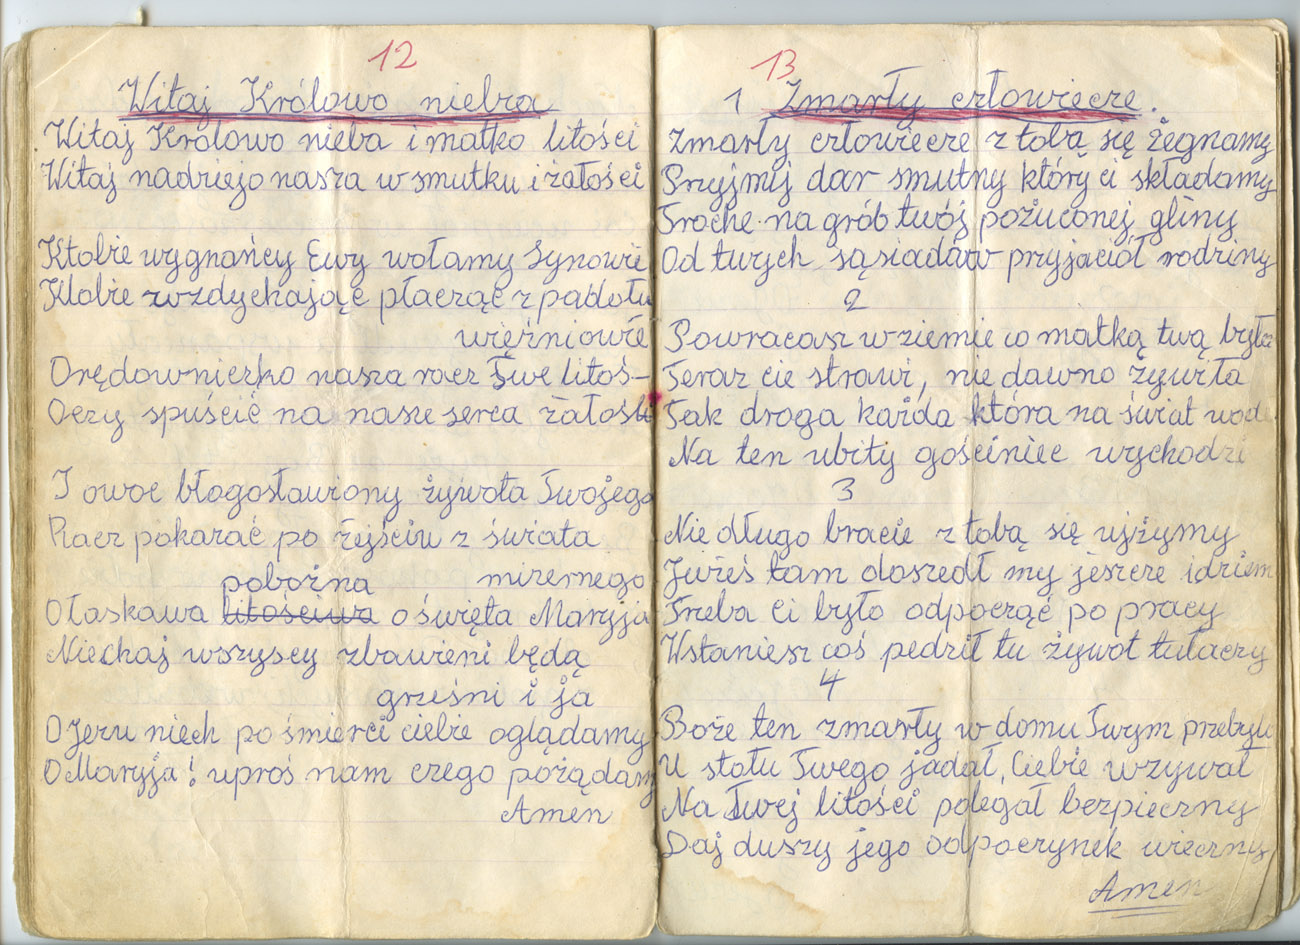 12
Witaj Królowo nieba
Witaj Królowo nieba i matko litości
Witaj nadziejo nasza w smutku i żałości
Ktobie wygnańcy Ewy wołamy Synowie
Ktobie wzdychając płacząc z padołu
więźniowie
Orędowniczko nasza racz Twe litoś-
Oczy spuścić na nasze serca żałośli
I owoc błogosławiony żywota Twojego
Racz pokazać po zejściu z świata
mizernego
pobożna
O łaskawa litościwa o święta Maryja
Niechaj wszyscy zbawieni będą
grześni i ja
O Jezu niech po śmierci ciebie oglądamy
O Maryja! uproś nam czego pożądamy
Amen
13
1 Zmarły człowiecze.
Zmarły człowiecze z tobą się żegnamy
Przyjmij dar smutny który ci składamy
Troche na grób twój pożuconej gliny
Od twych sąsiadów przyjaciół rodziny
2
Powracasz w ziemie co matką twą była
Teraz cie strawi, nie dawno żywiła
Tak droga każda która na świat wodzi
Na ten ubity gościniec wychodzi
3
Nie długo bracie z tobą się ujżymy
Jużeś tam doszedł my jeszcze idziem
Treba ci było odpocząć po pracy
Wstaniesz coś pedził tu żywot tułaczy
4
Boże ten zmarły w domu Twym przebył
U stołu Twego jadał, Ciebie wzywał
Na Twej litości polegał bezpieczny
Daj duszy jego odpoczynek wieczny
Amen